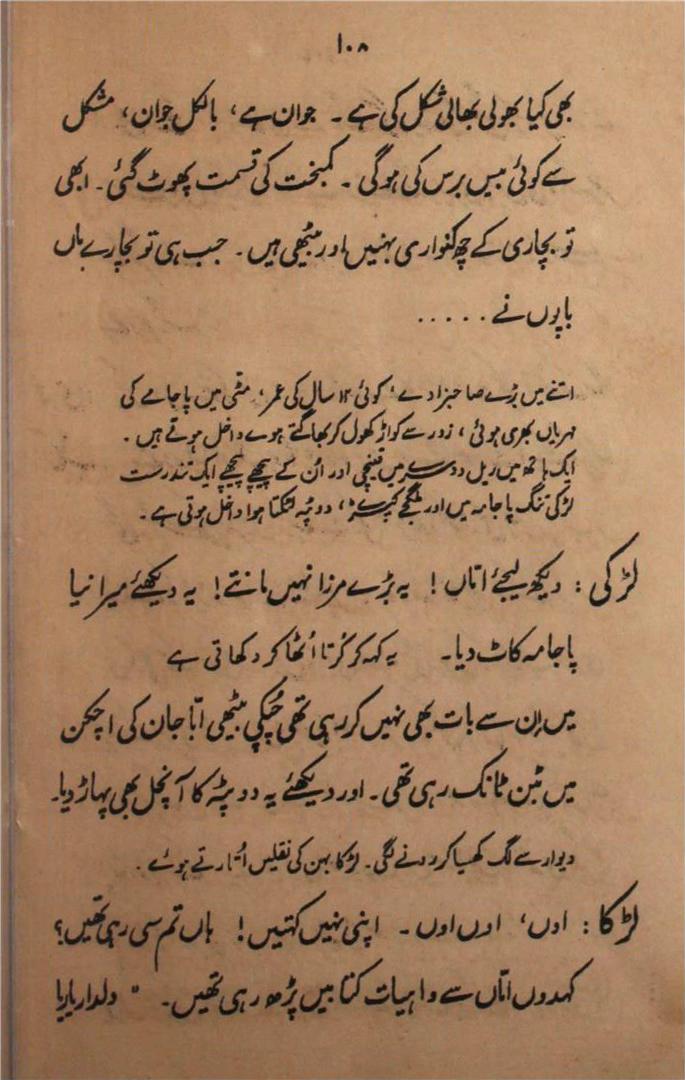 ۱۰۸
بھی کیا بھولی بھالی شکل کی ہے ۔ جوان ہے، بالکل جوان، مشکل
سے کوئی بیس برس کی ہوگی ۔ کمبخت کی قسمت پھوٹ گئی ۔ ابھی
تو بچاری کے چھ کنواری بہنیں اور بیٹھی ہیں ۔ جب ہی تو بچارے ماں
باپوں نے . . . . .
اتنے میں بڑے صاحبزادے، کوئی ۱۲ سال کی عمر، مٹی میں پاجامے کی
مہریاں بھری ہوئی، زور سے کواڑ کھول کر بھاگتے ہوے داخل ہوتے ہیں ۔
ایک ہاتھ میں ریل دوسرے میں قینچی اور اُن کے پیچھے پیچھے ایک تندرست
لڑکی تنگ پاجامہ میں اور ملگجے کپڑے، دوپٹہ لٹکتا ہوا داخل ہوتی ہے ۔
لڑکی : دیکھ لیجئے اماں ! یہ بڑے مرزا نہیں مانتے ! یہ دیکھئے میرا نیا
پاجامہ کاٹ دیا ۔ یہ کہہ کر کُرتا اُٹھا کر دکھاتی ہے
میں اِن سے بات بھی نہیں کر رہی تھی چُپکی بیٹھی ابّا جان کی اچکن
میں بٹن ٹانک رہی تھی ۔ اور دیکھئے یہ دوپٹہ کا آنچل بھی پھاڑ دیا ۔
دیوار سے لگ کھسیا کر رونے لگی ۔ لڑکا بہن کی نقلیں اُتارتے ہوئے ۔
لڑکا : اوں، اوں اوں ۔ اپنی نہیں کہتیں ! ہاں تم سی رہی تھیں؟
کہدوں اماں سے واہیات کتابیں پڑھ رہی تھیں ۔ " دلدار یار یا